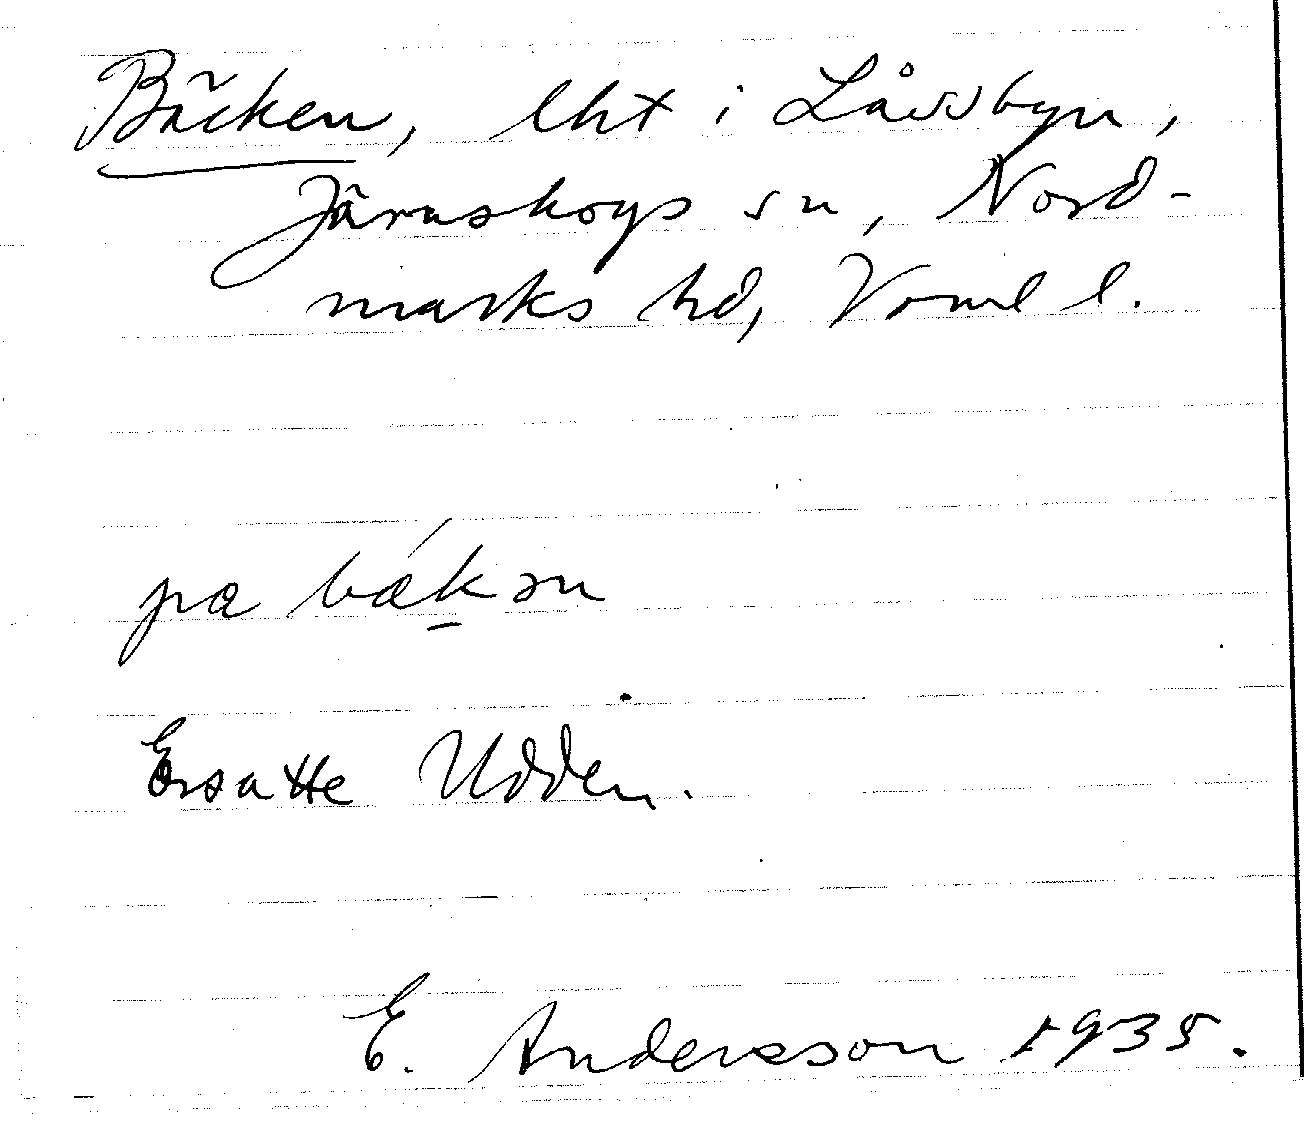 Bäcken, lht i Låssbyn,
Järnskogs sn, Nord-
marks hd, Verml l.
pæ bækən
Ersatte Udden.
E. Andersson 1935.